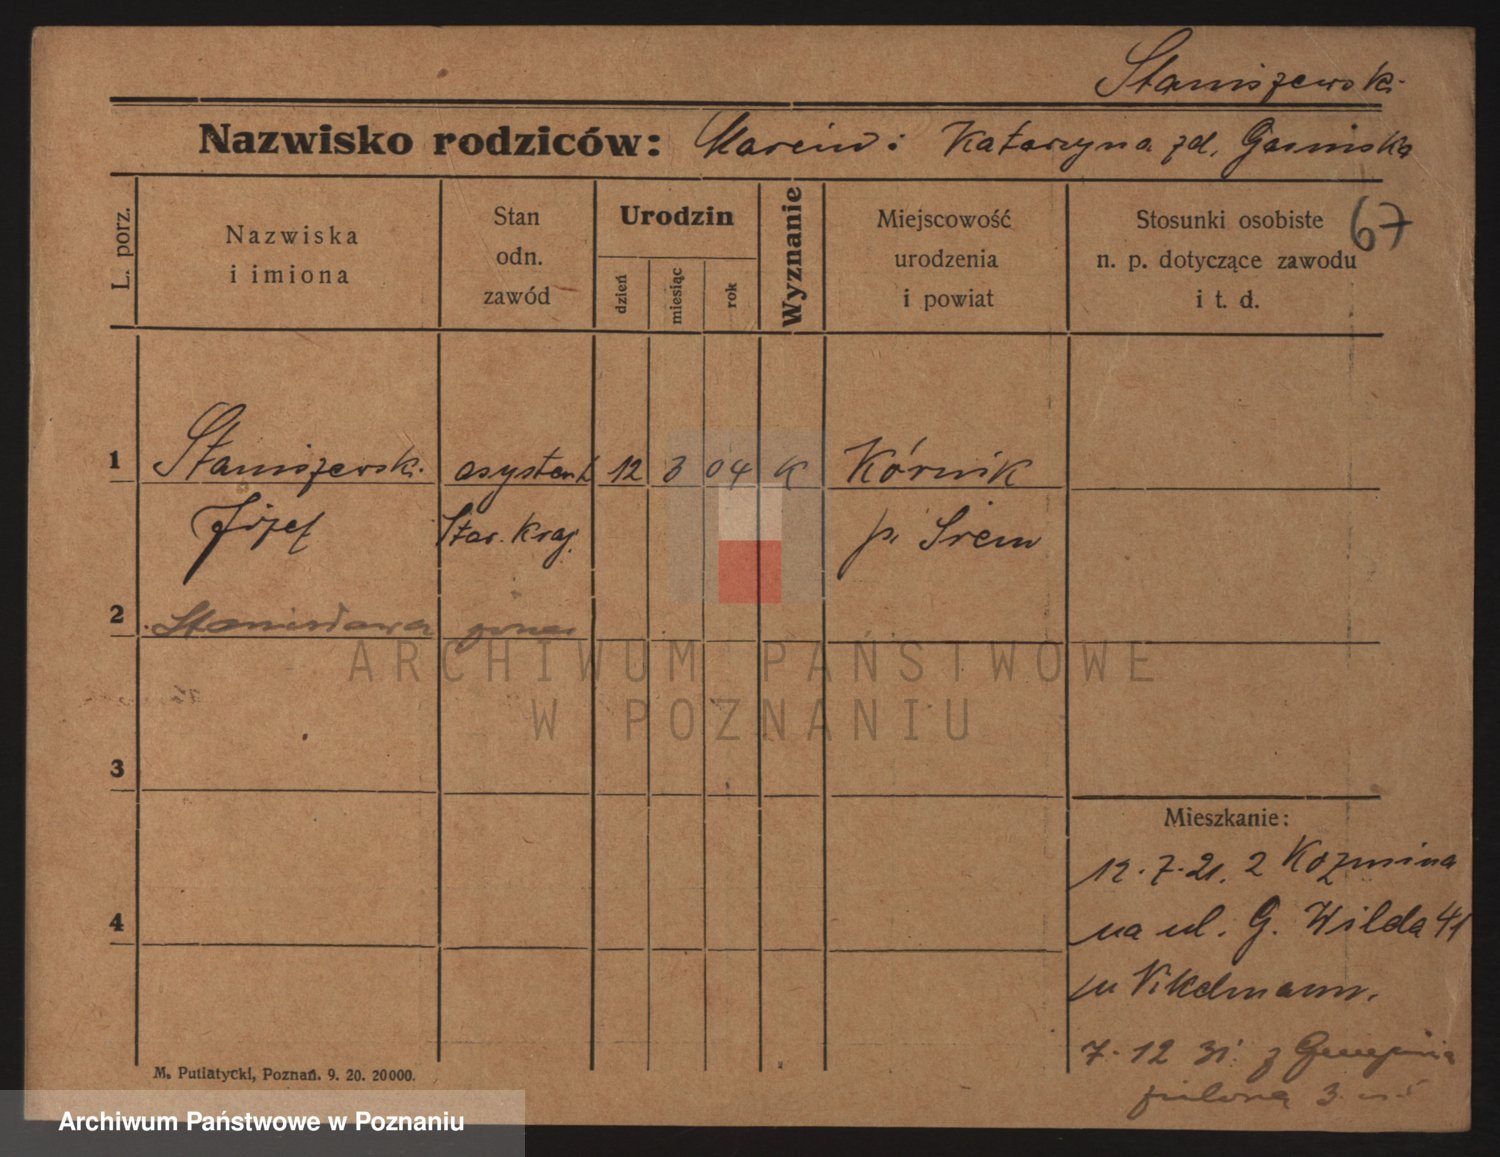 Staniszewski
Nazwisko rodziców: Marcin i Katarzyna zd. Gasinska
67
L. porz.
Nazwiska
i imiona
Stan
odn.
zawód
Urodzin
dzień
miesiąc
rok
Wyznanie
Miejscowość
urodzenia
i powiat
Stosunki osobiste
n. p. dotyczące zawodu
i t. d.
1 Staniszewski asystent 12 3 04 K Kórnik
Józef Star. Kraj. p. Srem
2 Stanisława żona
ARCHIWUM PAŃSTWOWE
W POZNANIU
3
Mieszkanie:
12.7.21. z Kozmina
4
na ul. G. Wilda 41
Vikelmann.
7.12 31. z
zielona 3
M. Putiatycki, Poznań. 9. 20. 20000.
Archiwum Państwowe w Poznaniu